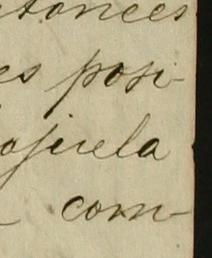 stances
es posi-
ojuela
com-